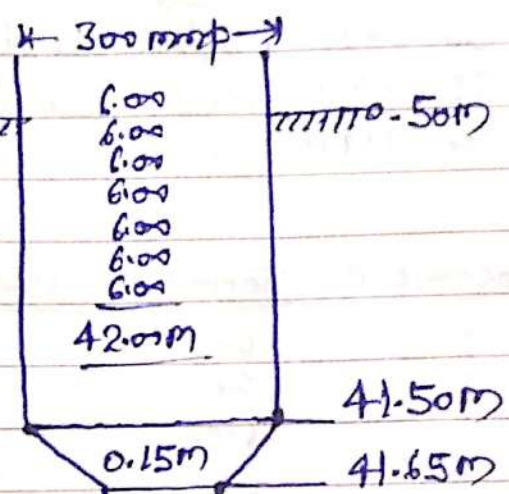 300 mmφ
6.00
6.00 0.50m
6.00
6.00
6.00
6.00
6.00
42.00m
41.50m
0.15m 41.65m